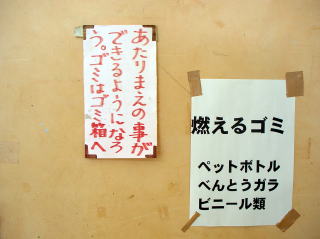 あたりまえの事が
できるようになろ
う。ゴミはゴミ箱へ
燃えるゴミ
ペットボトル
べんとうガラ
ビニール類